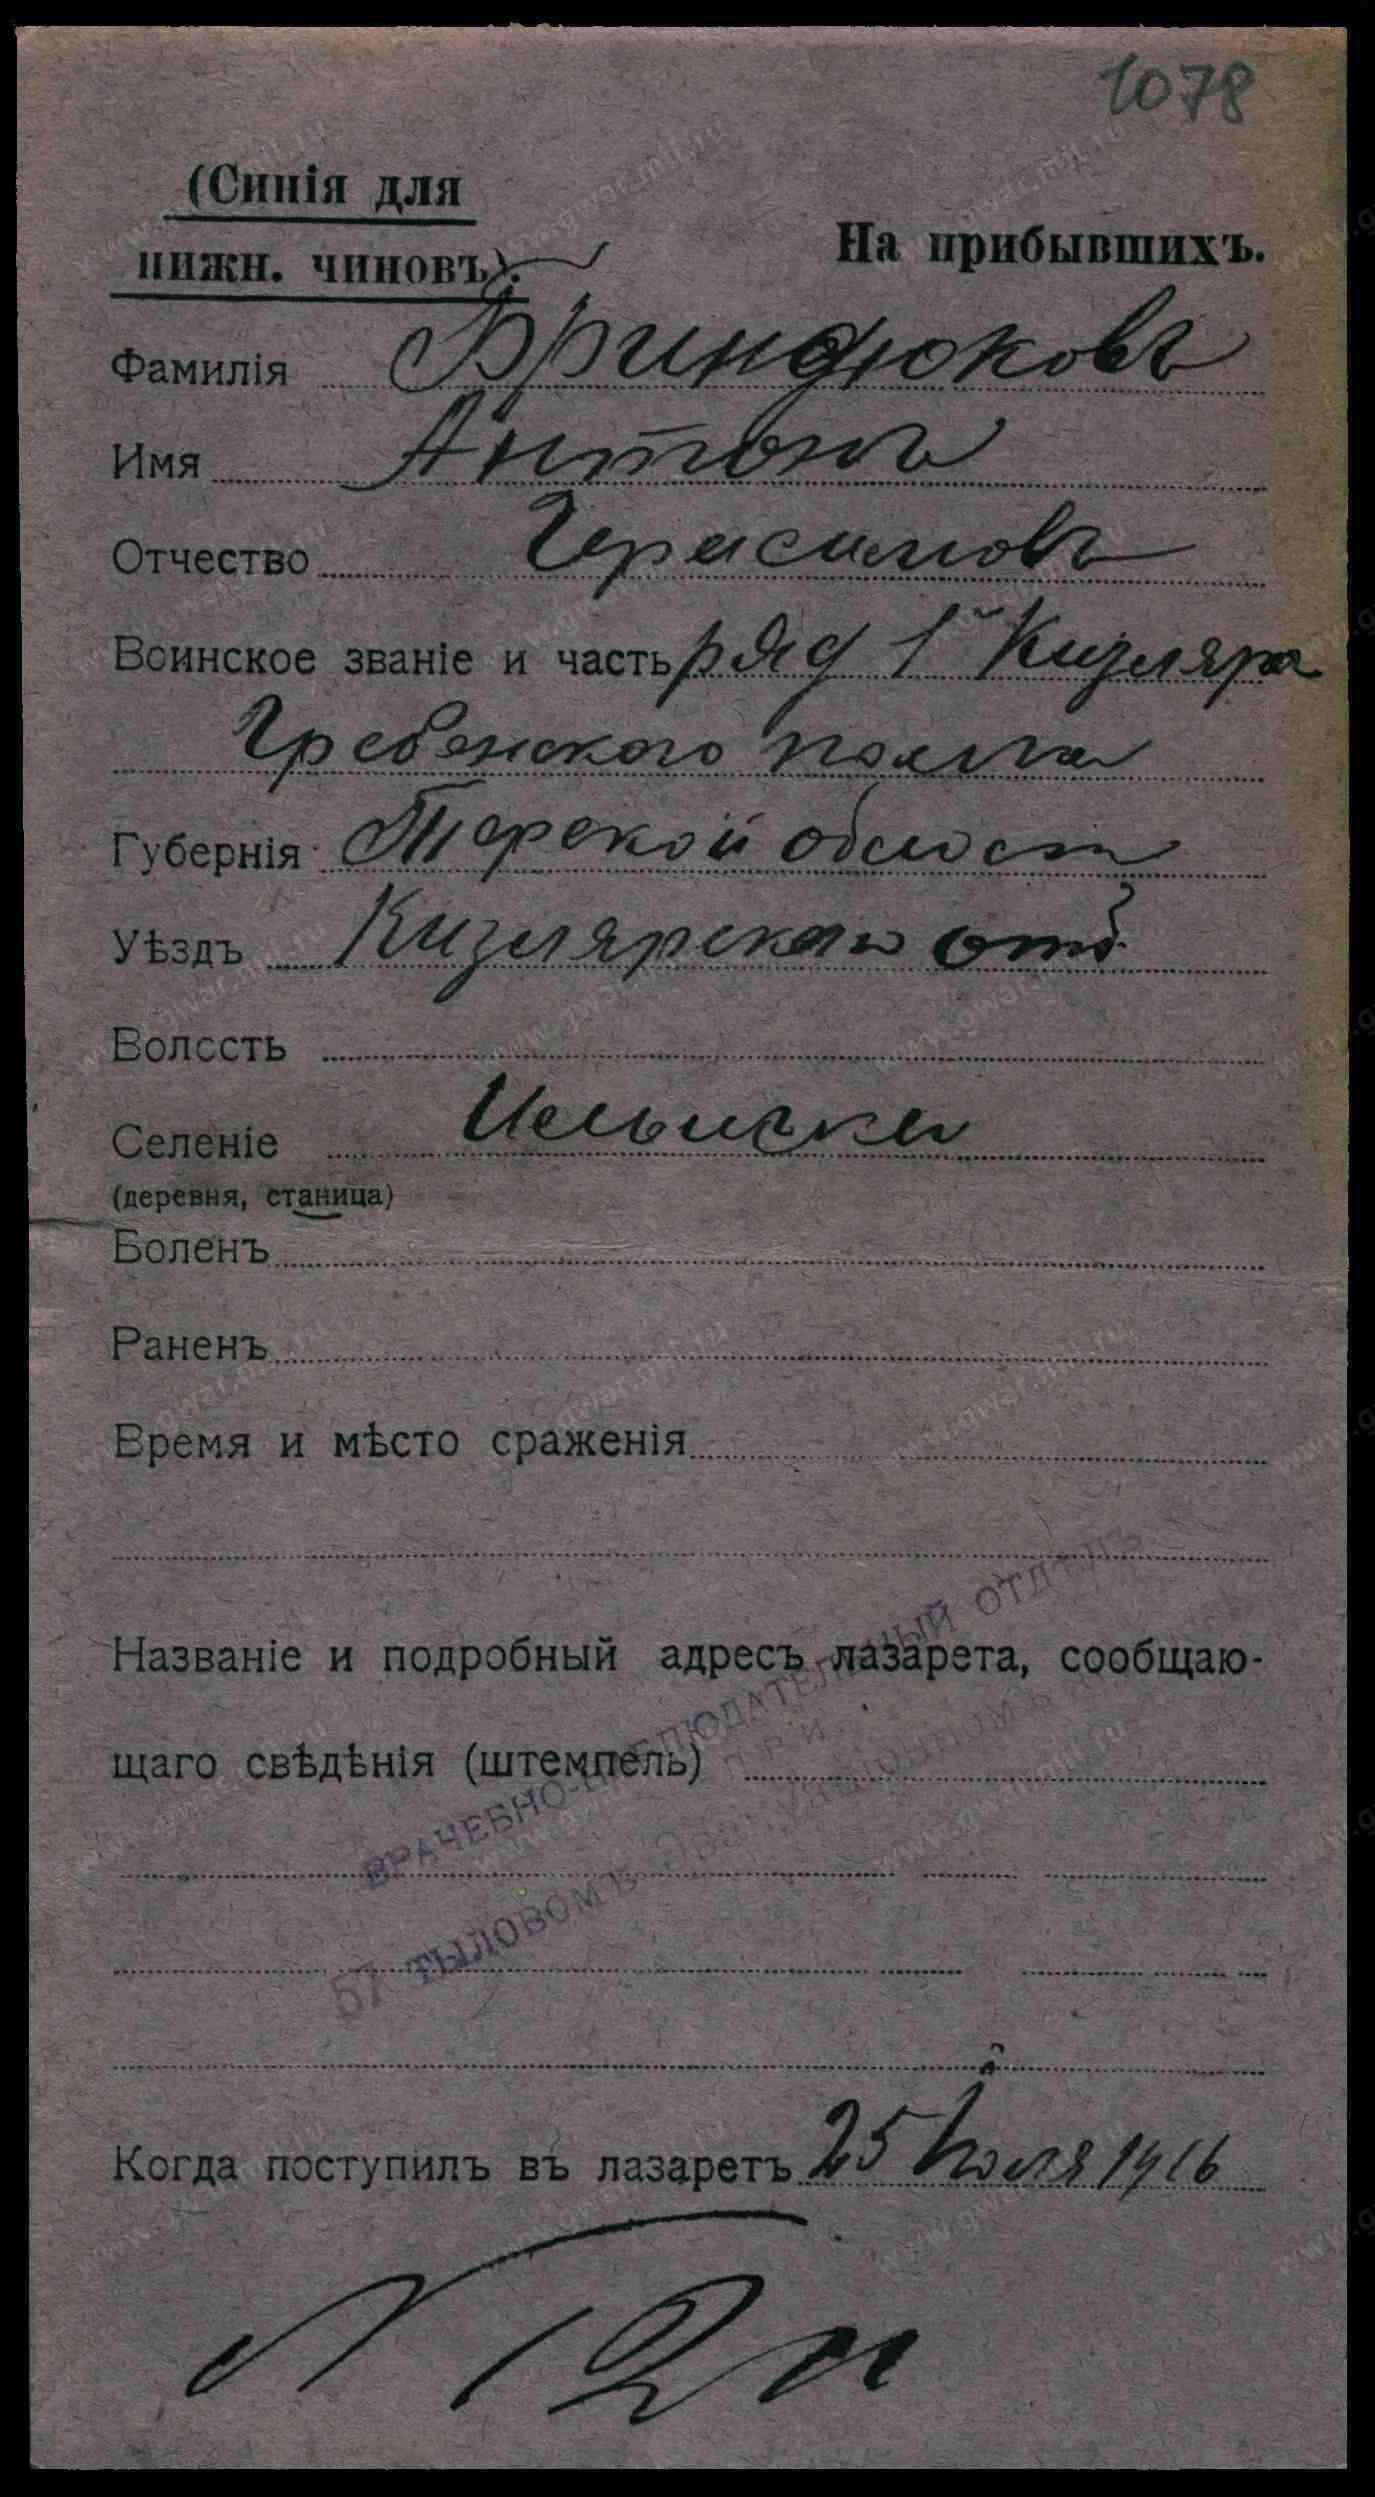 1078
(Синія для
нижн. чиновъ).
На прибывшихъ.
Фамилія Бриндюковъ
Имя Антонъ
Отчество Герасимовъ
Воинское званіе и часть ряд 1й Кизляро
Гребенского полка
Губернія Терской области
Уѣздъ Кизлярскаго отд.
Волость
Селеніе
(деревня, станица)
Боленъ
Раненъ
Время и мѣсто сраженія
Названіе и подробный адресъ лазарета, сообщаю-
щаго свѣдѣнія (штемпель)
ВРАЧЕБНО-НАБЛЮДАТЕЛЬНЫЙ ОТДѢЛЪ
ПРИ
57 ТЫЛОВОМЪ
Когда поступилъ въ лазаретъ 25 Іюля 1916